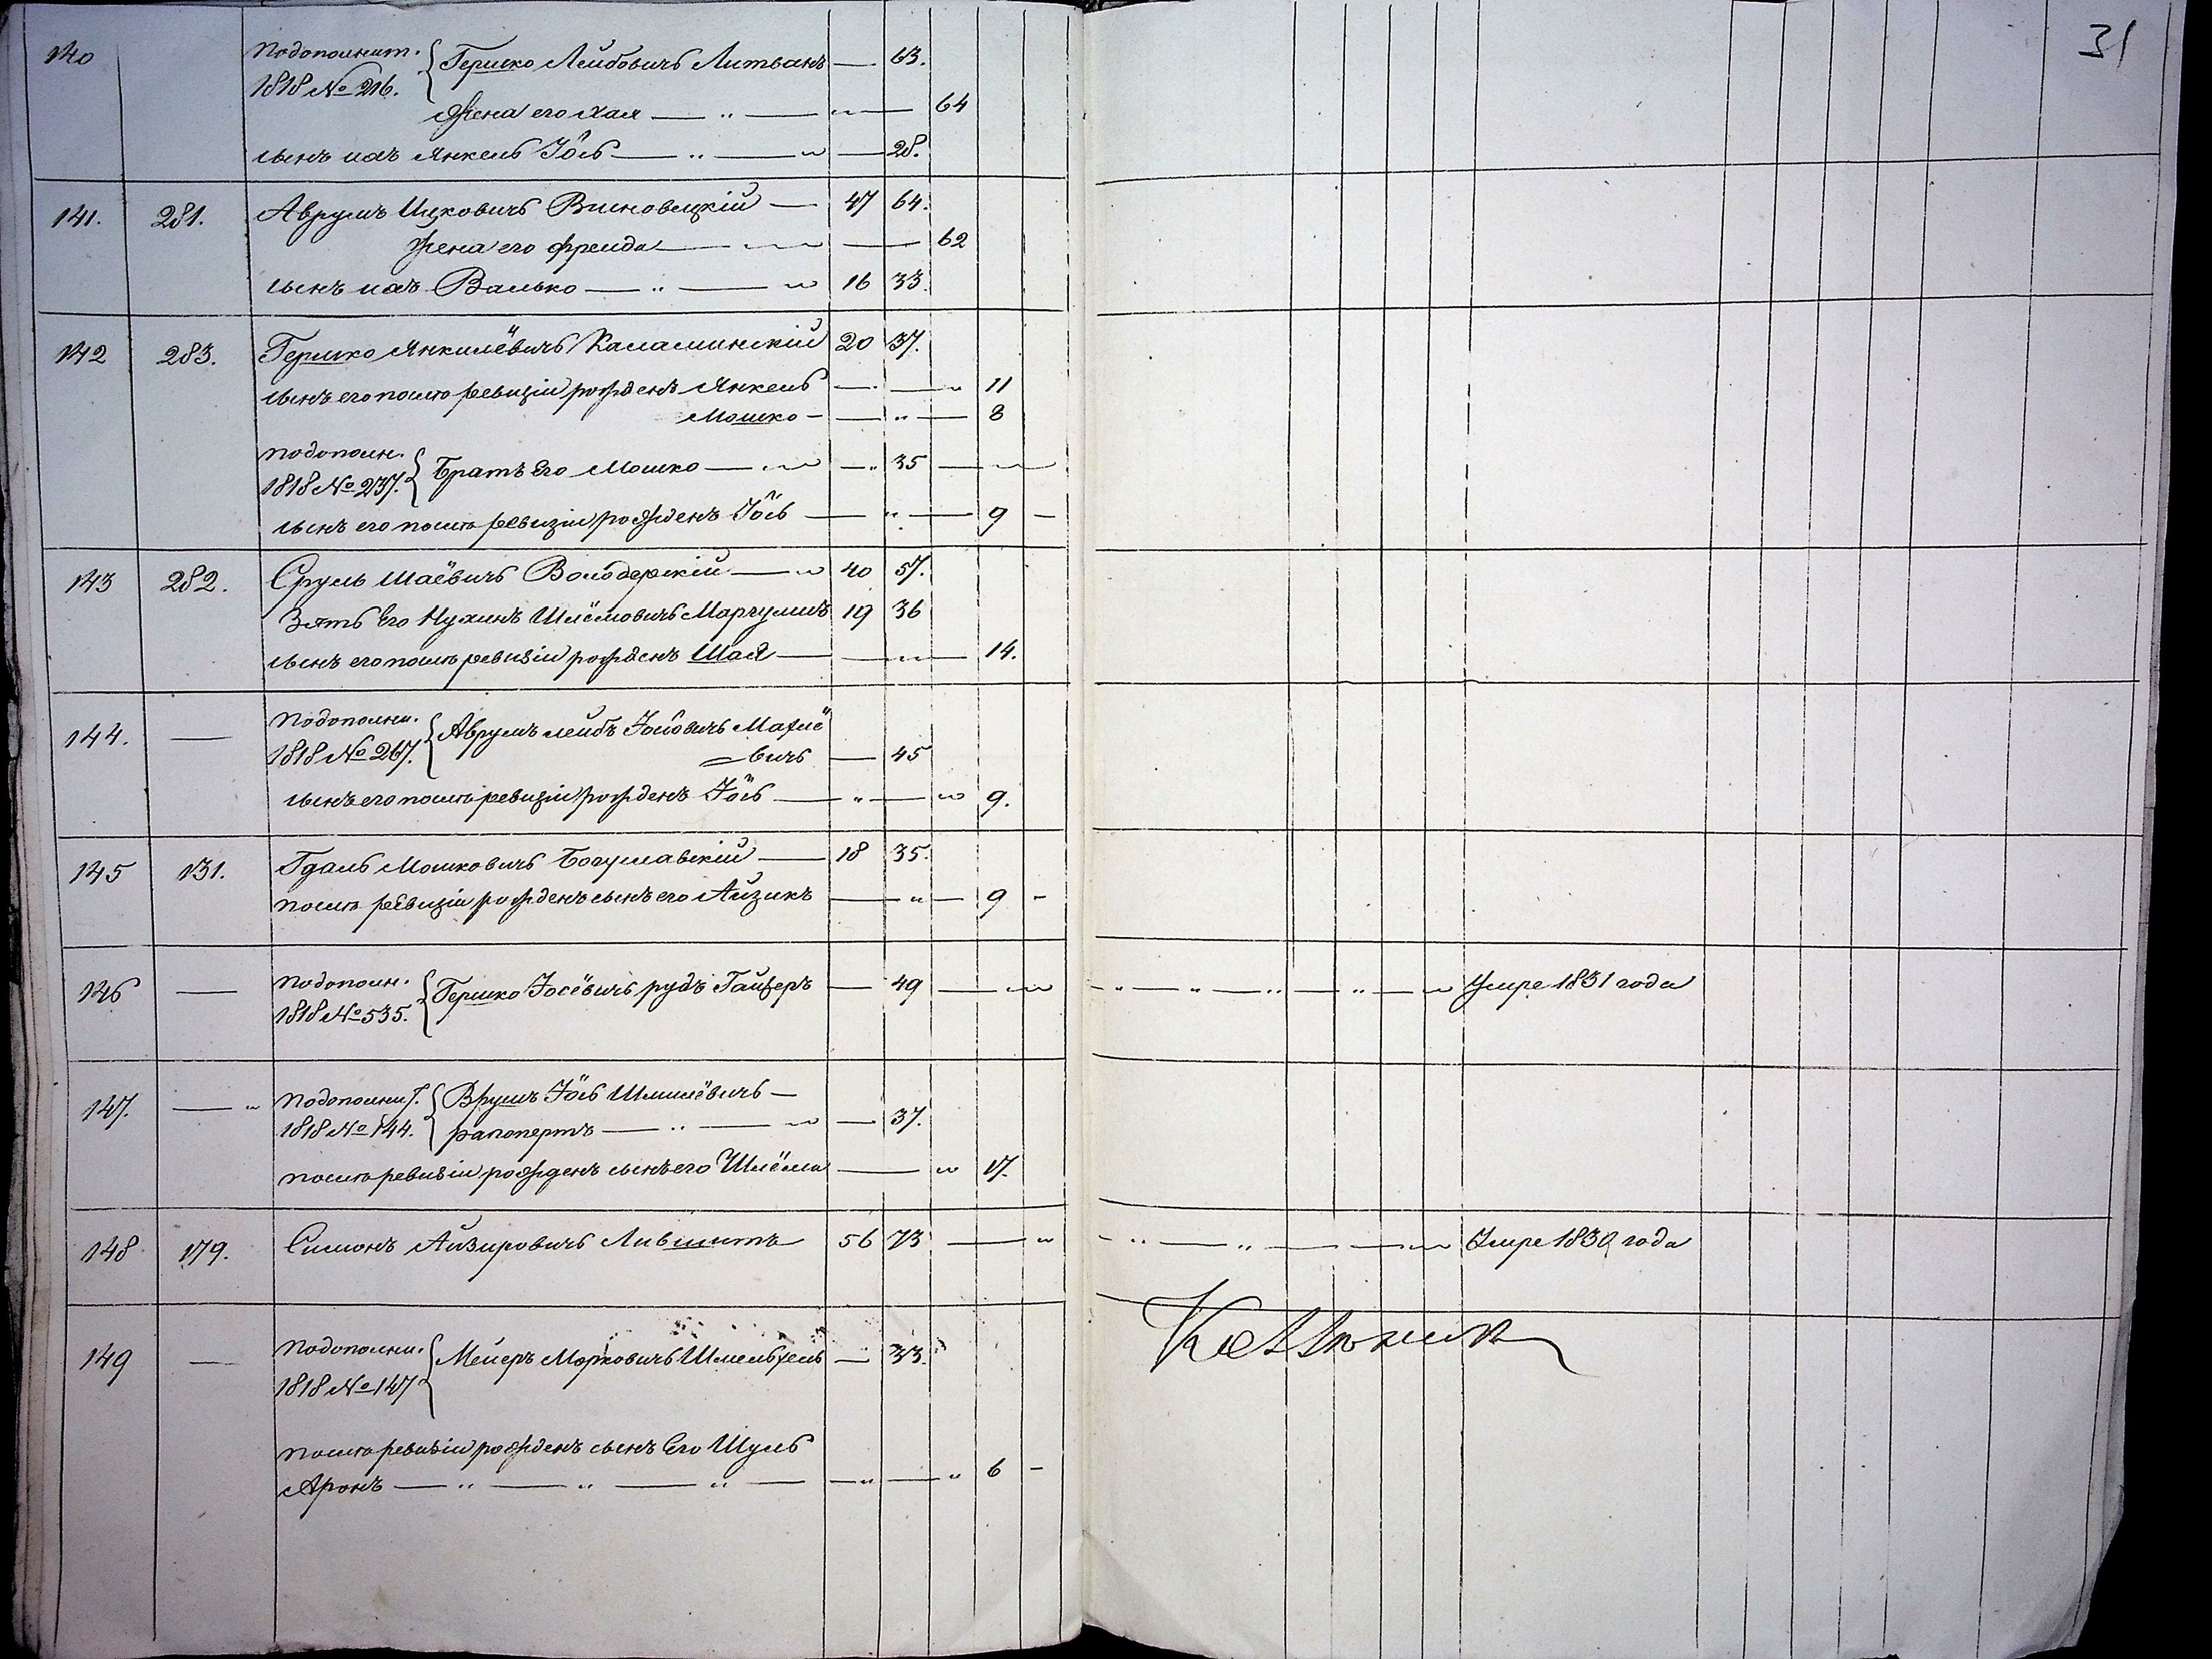 31
140 Подополнит. 1818 № 216. Гершко Лейбовичъ Литванъ — 63.
Жена его Хая — 64
сынъ ихъ Янкель Іôсь — 28.
141. 281. Аврумъ Ицковичъ Висновецкій — 47 64.
Жена его Фрейда — 62
сынъ ихъ Валько — 16 33.
142 283. Гершко Янкилёвичъ Каламинскій 20 37.
сынъ его послѣ ревизіи рожденъ Янкель — 11
Мошко — 8
подополн. 1818 № 237. Братъ Его Мошко — 35
сынъ его послѣ ревизіи рожденъ Іôсь — 9 —
143 282. Сруль Шаёвичъ Володерскій — 40 57.
Зять Его Нухинъ Шлёмовичъ Маргулисъ 19 36
сынъ его послѣ ревизіи рожденъ Шая — 14.
144. — Подополни. 1818 № 267. Аврумъ лейбъ Іосіовичъ
вичъ — 45
сынъ его послѣ ревизіи рожденъ Іôсь — 9.
145 131. Гдаль Мошковичъ Богуславскій — 18 35.
послѣ ревизіи рожденъ сынъ его Айзикъ — 9 —
146 — Подополн. 1818 № 535. Гершко Іосёвичъ рудъ — 49 — Умре 1831 года
147. — Подополнит. 1818 № 144. Врумъ Іôсь Шмилёвичъ —
рапопортъ — 37.
послѣ ревизіи рожденъ сынъ его Шлёма — 17.
148 179. Симонъ Айзировичъ Лившитъ 56 73 — Умре 1830 года
149 — Подополни. 1818 № 147 Мейеръ Морковичъ — 33.
послѣ ревизіи рожденъ сынъ Его Шуль
Аронъ — 6 —